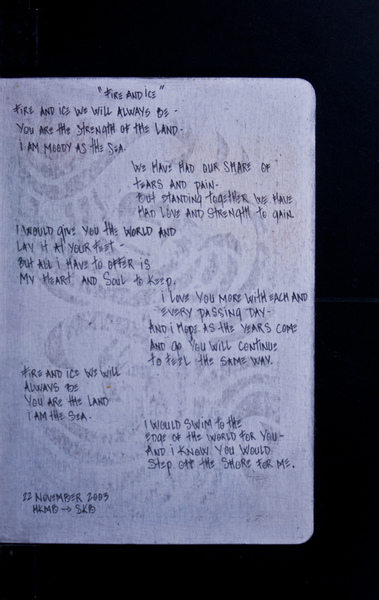 "FIRE AND ICE"
FIRE AND ICE WE WILL ALWAYS BE -
YOU ARE THE STRENGTH OF THE LAND -
I AM MOODY AS THE SEA.
WE HAVE HAD OUR SHARE OF
TEARS AND PAIN -
BUT STANDING TOGETHER WE HAVE
HAD LOVE AND STRENGTH TO GAIN
I WOULD GIVE YOU THE WORLD AND
LAY IT AT YOUR FEET -
BUT ALL I HAVE TO OFFER IS
MY HEART AND SOUL TO KEEP.
I LOVE YOU MORE WITH EACH AND
EVERY PASSING DAY -
AND I HOPE AS THE YEARS COME
AND GO YOU WILL CONTINUE
TO FEEL THE SAME WAY.
FIRE AND ICE WE WILL
ALWAYS BE
YOU ARE THE LAND
I AM THE SEA.
I WOULD SWIM TO THE
EDGE OF THE WORLD FOR YOU -
AND I KNOW YOU WOULD
STEP OFF THE SHORE FOR ME.
22 NOVEMBER 2003
HKMB → SKB